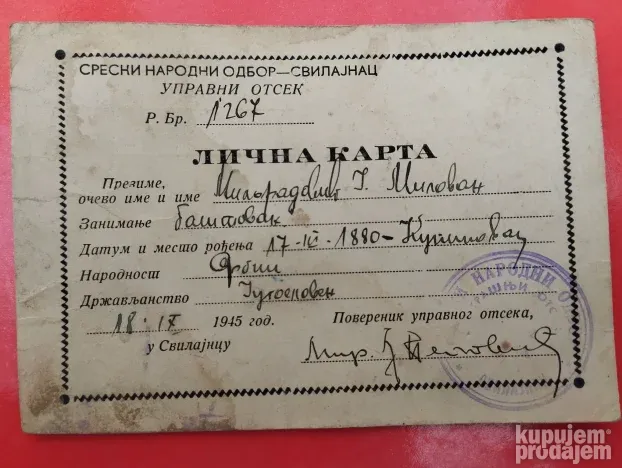 СРЕСКИ НАРОДНИ ОДБОР—СВИЛАЈНАЦ
УПРАВНИ ОТСЕК
Р. Бр. 1267
ЛИЧНА КАРТА
Презиме,
очево име и име Милорадовић Ј. Милован
Занимање баштован
Датум и место рођења 17-III-1880-
Народност Србин
Држављанство Југословен
18-IX 1945 год.
Повереник управног отсека,
у Свилајнцу
Мир.
НАРОДНИ
kupujem
prodajem